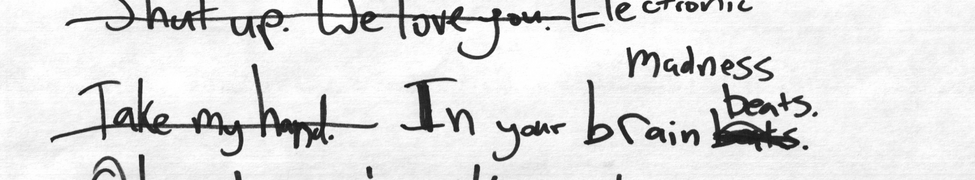 Shut up. We love you. Electronic
Madness
Take my hand. In your brain beats.